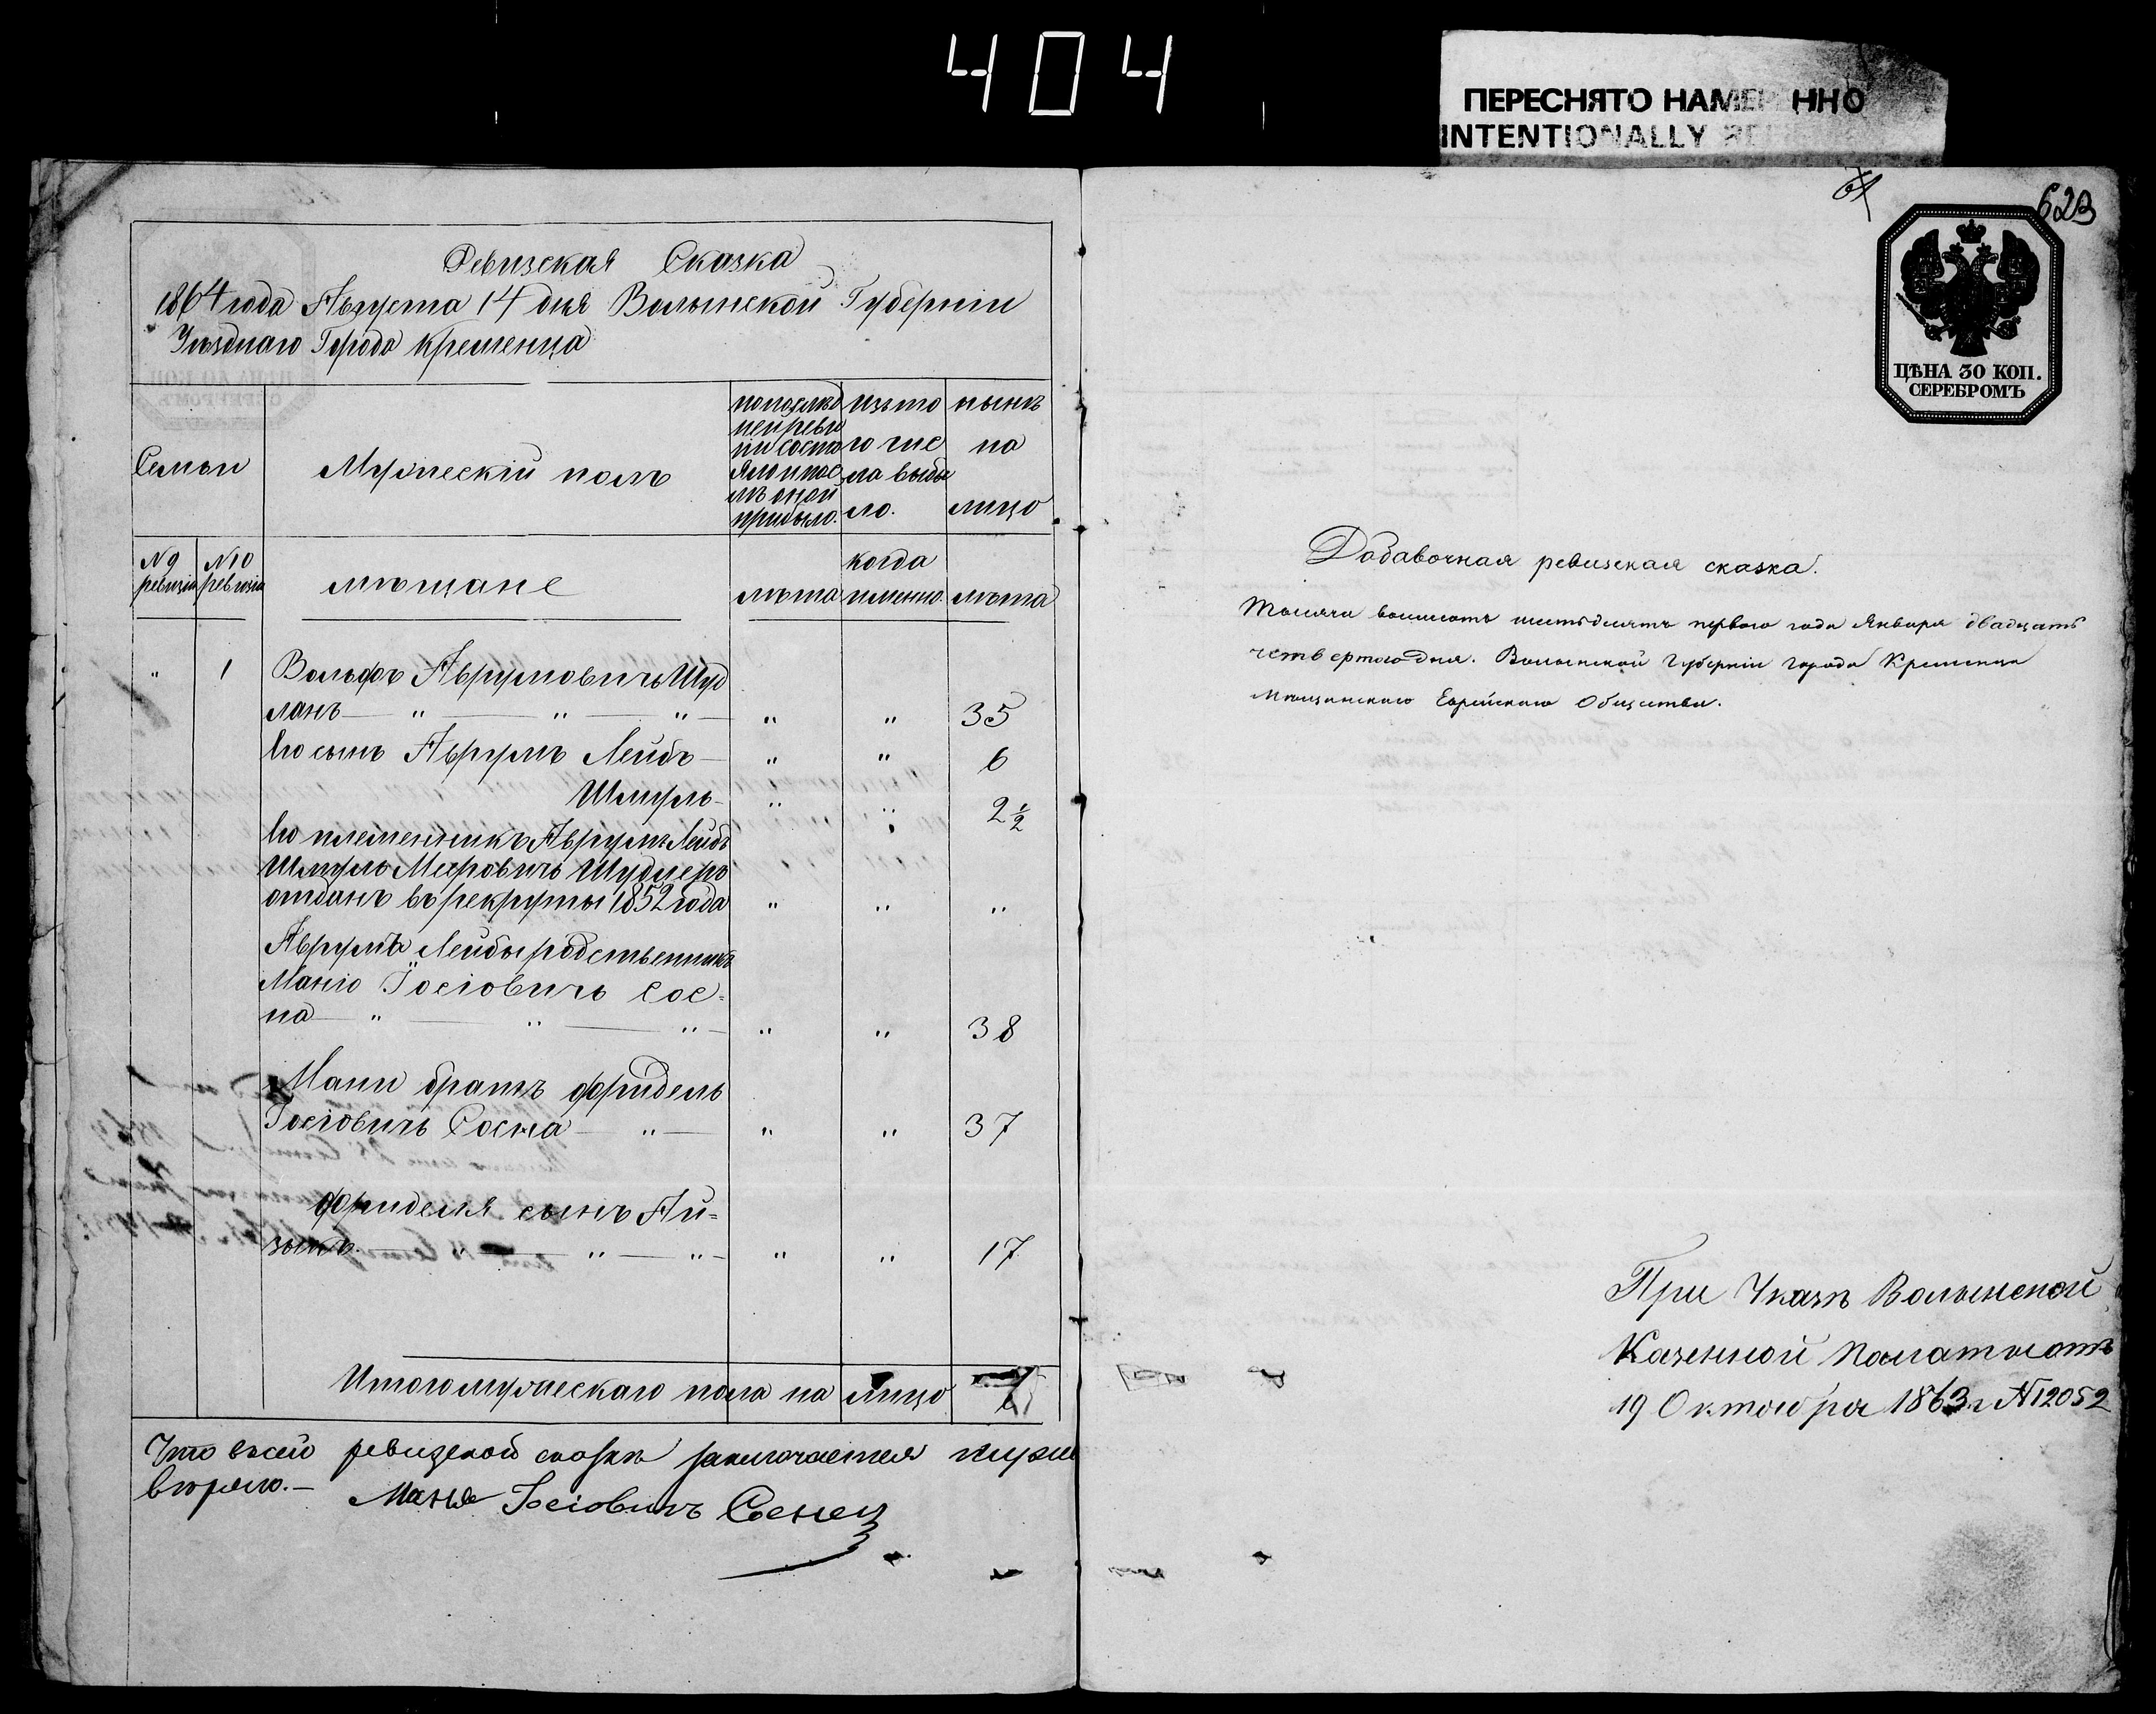 404
ПЕРЕСНЯТО НАМЕРЕННО
INTENTIONALLY
Ревизская Сказка
1864 года Августа 14 дня Волынской Губерніи
Уѣзднаго Города Кременца
Семьи
Мужескій полъ
по послѣд
ней реви
зіи состо
яло и пос
лѣ оной
прибыло.
изъ то
го чис
ла выбы
ло.
нынѣ
на
лицо
N 9
ревизіи
N 10
ревизіи
мѣщане
лѣта
когда
именно.
лѣта
" 1 Вольфъ Аврумовичъ Шуд
ланъ — " — " — " — " " 35
Его сынъ Аврумъ Лейбъ — " " 6
Шмуль — " " 2 ½
Его племенникъ Аврумъ Лейбъ
Шмуль Мееровичъ Шудлеръ
отданъ въ рекруты 1852 года " " "
Аврумъ Лейбы родственникъ
Маню Іосіовичъ Сос-
на — " — " — " — " " 38
Мани братъ Фридель
Іосіовичъ Сосна — " — " " 37
Фриделя сынъ Ай-
зыкъ — " — " — " — " " 17
Итого мужескаго пола на лицо
Что въ сей ревизской сказкѣ заключается
вѣрно. — Маня Іосіовичъ
61
62
ЦѢНА 30 КОП.
СЕРЕБРОМЪ
Добавочная ревизская сказка.
Тысяча восемсотъ шестьдесятъ первого года Января двадцать
четвертого дня. Волынской Губерніи города Кременца
Мѣщанскаго Еврейскаго Общества.
При Указѣ Волынской
Казенной Палаты отъ
19 Октября 1863 г. N 12052